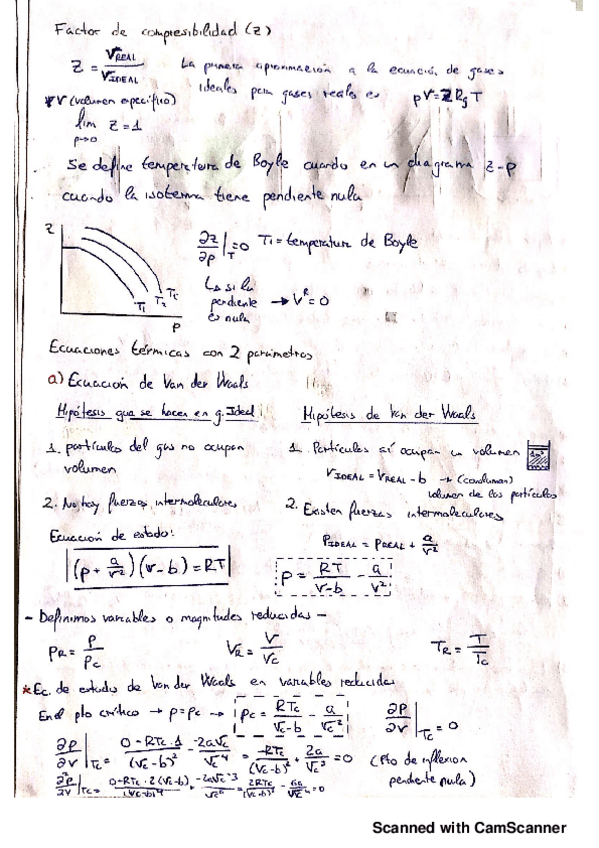 Factor de compresibilidad (z)
Z = V REAL / V IDEAL   La primera aproximación a la ecuación de gases
ideales para gases reales es   pV = Z Rg T
V (volumen específico)
lim Z = 1
p→0
Se define temperatura de Boyle cuando en un diagrama z-p
cuando la isoterma tiene pendiente nula
z
∂z/∂p |T = 0   T1 = temperatura de Boyle
↳ si la
pendiente → V^R = 0
es nula
T1 T2 Tc
p
Ecuaciones térmicas con 2 parámetros
a) Ecuación de Van der Waals
Hipótesis que se hacen en g. Ideal
1. partículas del gas no ocupan
volumen
2. No hay fuerzas intermoleculares
Ecuación de estado:
(p + a/v²)(v-b) = RT
Hipótesis de Van der Waals
1. Partículas sí ocupan un volumen
V IDEAL = V REAL - b → (covolumen)
volumen de las partículas
2. Existen fuerzas intermoleculares
P IDEAL = P REAL + a/v²
p = RT/(v-b) - a/v²
- Definimos variables o magnitudes reducidas -
PR = p/pc   VR = V/Vc   TR = T/Tc
* Ec. de estado de Van der Waals en variables reducidas
En el pto crítico → p = pc → pc = RTc/(Vc-b) - a/Vc²   ∂p/∂v |Tc = 0
∂p/∂v |Tc = (0-RTc·1)/(Vc-b)² - -2aVc/Vc⁴ = -RTc/(Vc-b)² + 2a/Vc³ = 0   (Pto de inflexion
pendiente nula)